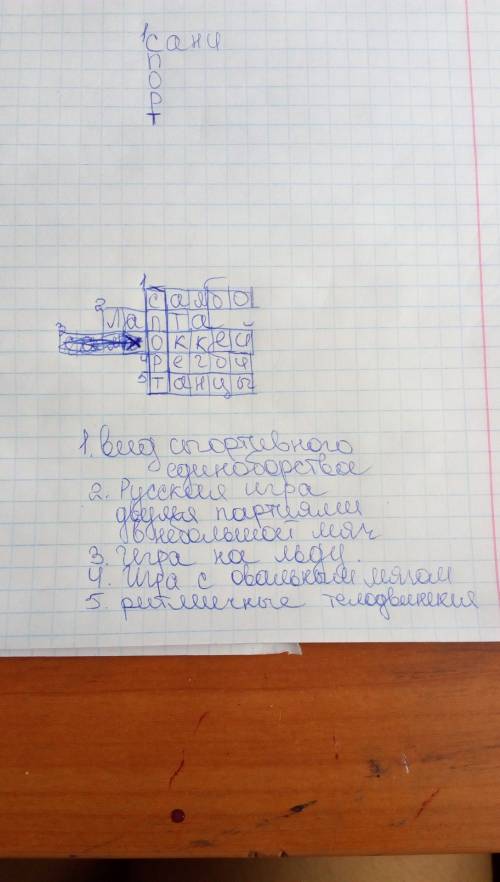 1 сани
п
о
р
т
1 самбо
2 лапта
3 оккей
4 регби
5 танцы
1. вид спортивного
единоборства
2. Русская игра
двумя партиями
в небольшой мяч
3. Игра на льду.
4. Игра с овальным мячом
5. ритмичные телодвижения